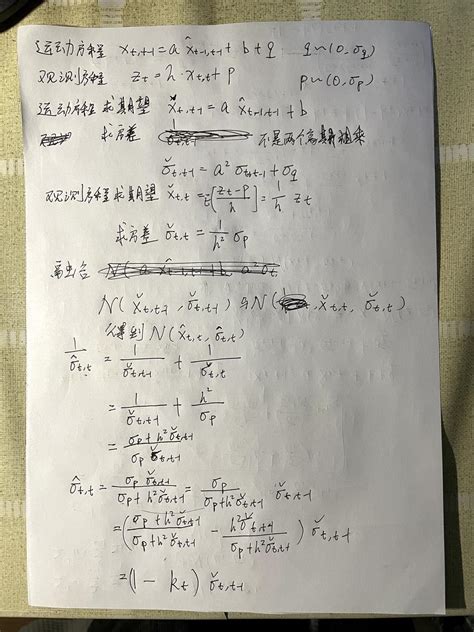 运动方程 x_{t,t-1} = a x̂_{t-1,t-1} + b + q   q~(0, σ_q)
观测方程 z_t = h·x_{t,t} + p   p~(0, σ_p)
运动方程 求期望 x̌_{t,t-1} = a x̂_{t-1,t-1} + b
求方差 不是两个高斯相乘
σ̌_{t,t-1} = a² σ_{t-1,t-1} + σ_q
观测方程 求期望 x̌_{t,t} = E[(z_t - p)/h] = 1/h z_t
求方差 σ̌_{t,t} = 1/h² σ_p
N(x̌_{t,t-1}, σ̌_{t,t-1}) 与 N(x̌_{t,t}, σ̌_{t,t})
得到 N(x̂_{t,t}, σ̂_{t,t})
1/σ̂_{t,t} = 1/σ̌_{t,t-1} + 1/σ̌_{t,t}
= 1/σ̌_{t,t-1} + h²/σ_p
= (σ_p + h²σ̌_{t,t-1})/(σ_p σ̌_{t,t-1})
σ̂_{t,t} = (σ_p σ̌_{t,t-1})/(σ_p + h²σ̌_{t,t-1}) = σ_p/(σ_p + h²σ̌_{t,t-1}) σ̌_{t,t-1}
= ((σ_p + h²σ̌_{t,t-1})/(σ_p + h²σ̌_{t,t-1}) - h²σ̌_{t,t-1}/(σ_p + h²σ̌_{t,t-1})) σ̌_{t,t-1}
= (1 - k_t) σ̌_{t,t-1}